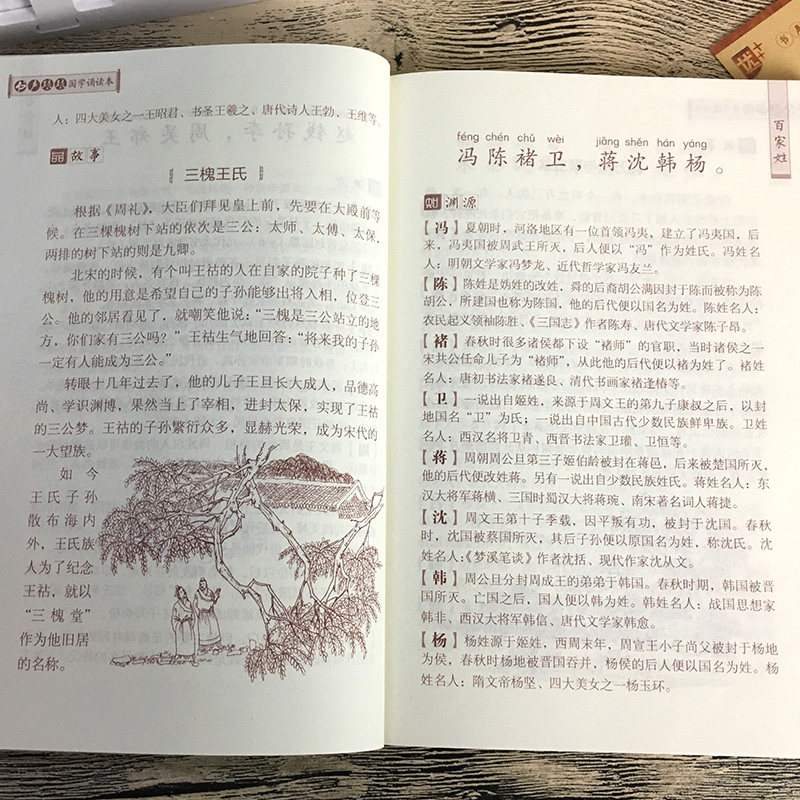 书声琅琅 国学诵读本
人：四大美女之一王昭君、书圣王羲之、唐代诗人王勃、王维等。
故事
三槐王氏
根据《周礼》，大臣们拜见皇上前，先要在大殿前等
候。在三棵槐树下站的依次是三公：太师、太傅、太保，
两排的树下站的则是九卿。
北宋的时候，有个叫王祜的人在自家的院子种了三棵
槐树，他的用意是希望自己的子孙能够出将入相，位登三
公。他的邻居看见了，就嘲笑他说：“三槐是三公站立的地
方，你们家有三公吗？”王祜生气地回答：“将来我的子孙
一定有人能成为三公。”
转眼十几年过去了，他的儿子王旦长大成人，品德高
尚、学识渊博，果然当上了宰相，进封太保，实现了王祜
的三公梦。王祜的子孙繁衍众多，显赫光荣，成为宋代的
一大望族。
如今
王氏子孙
散布海内
外，王氏族
人为了纪念
王祜，就以
“三槐堂”
作为他旧居
的名称。
百家姓
féng chén chǔ wèi jiǎng shěn hán yáng
冯陈褚卫，蒋沈韩杨。
渊源
【冯】夏朝时，河洛地区有一位首领冯夷，建立了冯夷国，后
来，冯夷国被周武王所灭，后人便以“冯”作为姓氏。冯姓名
人：明朝文学家冯梦龙，近代哲学家冯友兰。
【陈】陈姓是妫姓的改姓，舜的后裔胡公满因封于陈而被称为陈
胡公，所建国也称为陈国，他的后代便以国名为姓。陈姓名人：
农民起义领袖陈胜、《三国志》作者陈寿、唐代文学家陈子昂。
【褚】春秋时很多诸侯都下设“褚师”的官职，当时诸侯之一
宋共公任命儿子为“褚师”，从此他的后代便以褚为姓了。褚姓
名人：唐初书法家褚遂良、清代书画家褚逢椿等。
【卫】一说出自姬姓，来源于周文王的第九子康叔之后，以封
地国名“卫”为氏；一说出自中国古代少数民族鲜卑族。卫姓
名人：西汉名将卫青、西晋书法家卫瓘、卫恒等。
【蒋】周朝周公旦第三子姬伯龄被封在蒋邑，后来被楚国所灭，
他的后代便改姓蒋。另有一说出自少数民族姓氏。蒋姓名人：东
汉大将军蒋横、三国时蜀汉大将蒋琬、南宋著名词人蒋捷。
【沈】周文王第十子季载，因平叛有功，被封于沈国。春秋
时，沈国被蔡国所灭，其后子孙便以原国名为姓，称沈氏。沈
姓名人：《梦溪笔谈》作者沈括、现代作家沈从文。
【韩】周公旦分封周成王的弟弟于韩国。春秋时期，韩国被晋
国所灭。亡国之后，国人便以韩为姓。韩姓名人：战国思想家
韩非、西汉大将军韩信、唐代文学家韩愈。
【杨】杨姓源于姬姓，西周末年，周宣王小子尚父被封于杨地
为侯，春秋时杨地被晋国吞并，杨侯的后人便以国名为姓。杨
姓名人：隋文帝杨坚、四大美女之一杨玉环。